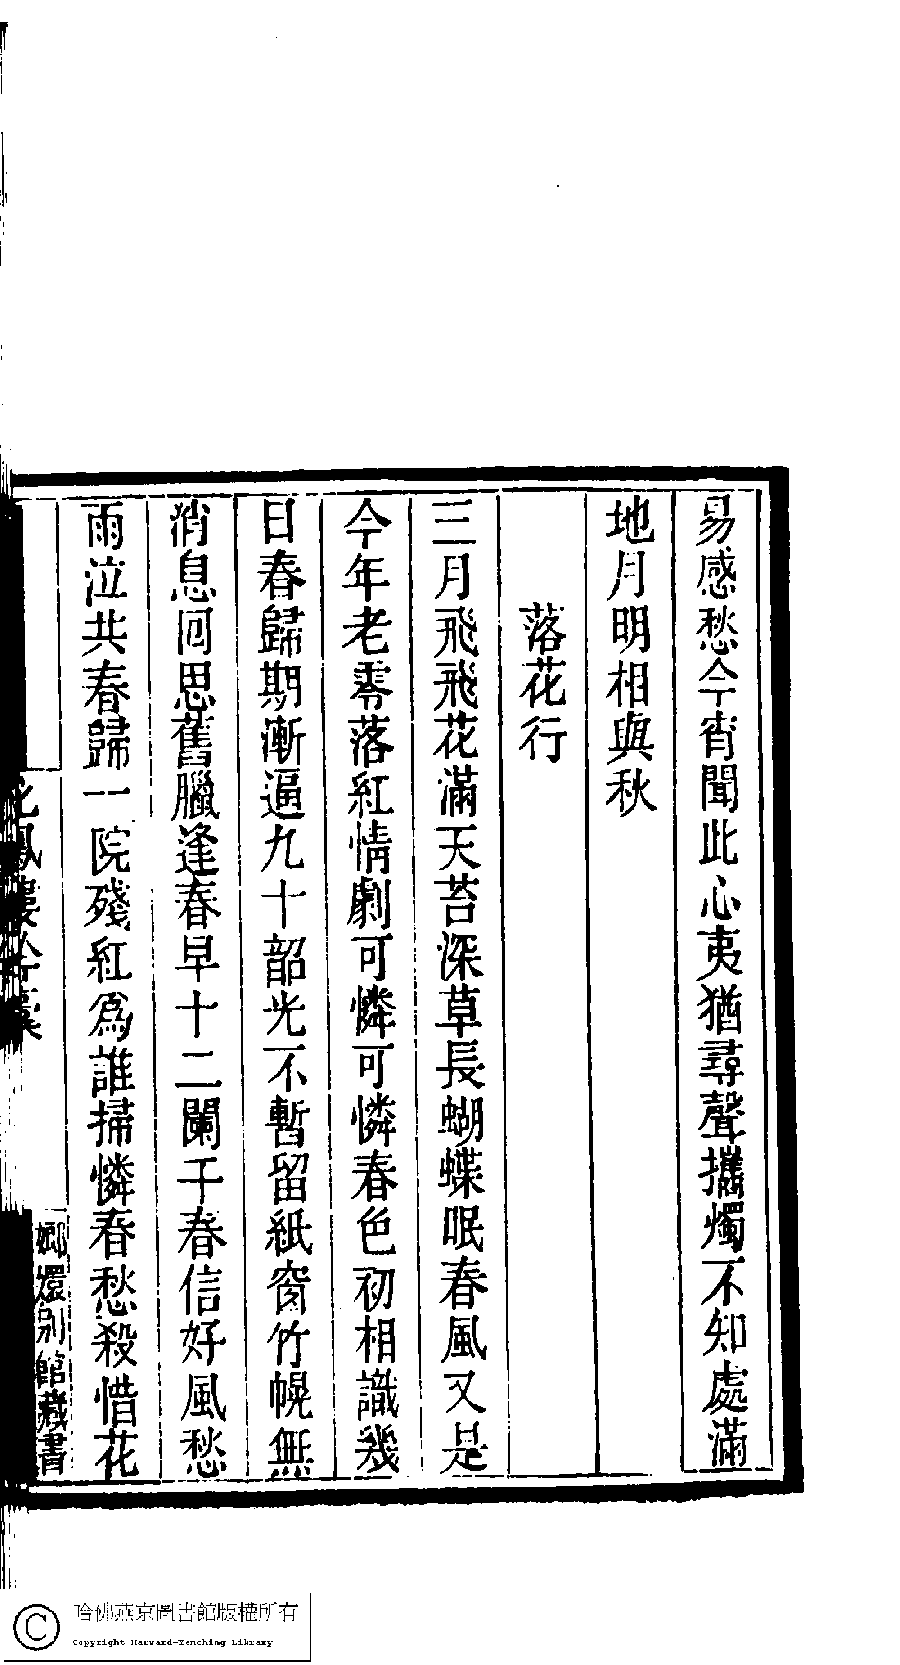 易感愁今宵聞此心夷猶尋聲攜燭不知處滿
地月明相與秋
落花行
三月飛飛花滿天苔深草長蝴蝶眠春風又是
今年老零落紅情劇可憐可憐春色初相識幾
日春歸期漸逼九十韶光不暫留紙窗竹幌無
消息回思舊臘逢春早十二闌干春信好風愁
雨泣共春歸一院殘紅為誰掃憐春愁殺惜花
鳳樓吟稾
嫏嬛別館藏書
哈佛燕京圖書館版權所有
Copyright Harvard-Yenching Library